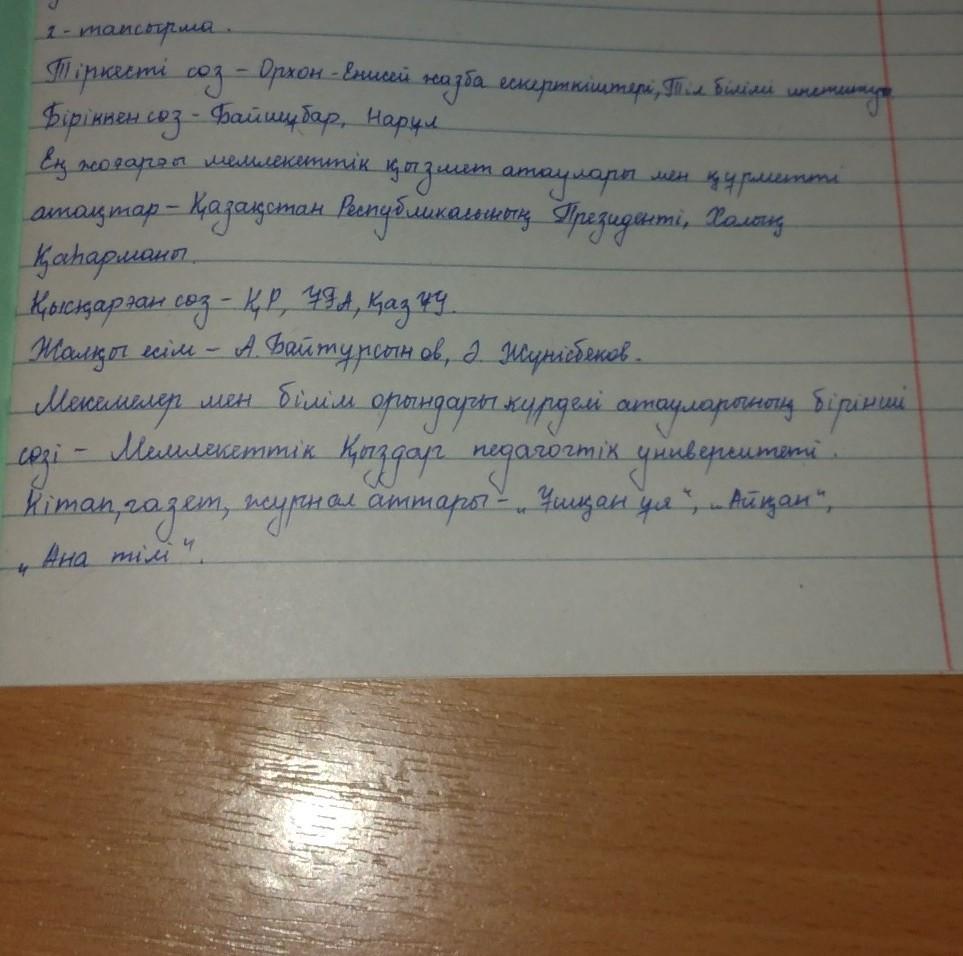 2 - тапсырма.
Тіркесті сөз - Орхон - Енисей жазба ескерткіштері, Тіл білімі институты
Біріккен сөз - Байшұбар, Нарқұл
Ең жоғарғы мемлекеттік қызмет атаулары мен құрметті
атақтар - Қазақстан Республикасының Президенті, Халық
Қаһарманы.
Қысқарған сөз - ҚР, ҰҒА, ҚазҰУ.
Жалқы есім - А. Байтұрсынов, Ә. Жүнісбеков.
Мекемелер мен білім орындары күрделі атауларының бірінші
сөзі - Мемлекеттік Қыздар педагогтік университеті.
Кітап, газет, журнал аттары - „Ұшқан ұя“, „Айқап“,
„Ана тілі“.